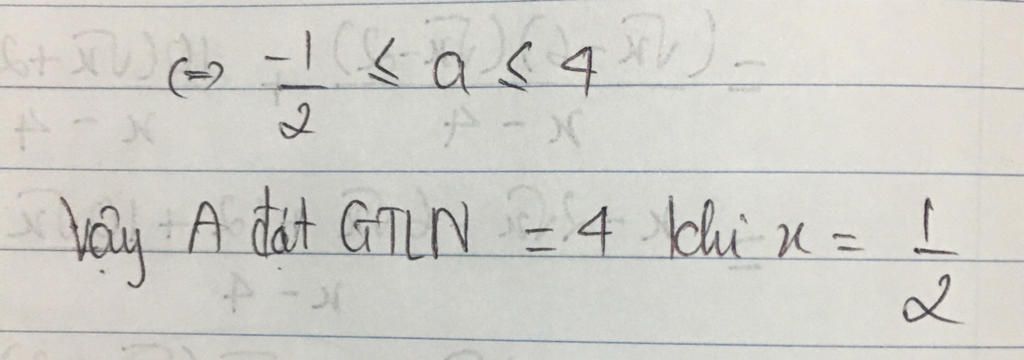 ⇔ -1/2 ≤ a ≤ 4
Vậy A đạt GTLN = 4 khi x = 1/2